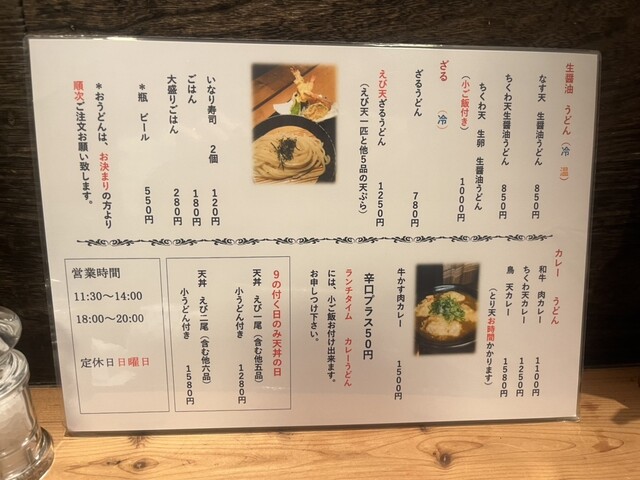 生醤油 うどん（冷 温）
なす天 生醤油うどん 850円
ちくわ天生醤油うどん 850円
ちくわ天 生卵 生醤油うどん
（小ご飯付き） 1000円
ざる （冷）
ざるうどん 780円
えび天ざるうどん 1250円
（えび天一匹と他5品の天ぷら）
いなり寿司 2個 120円
ごはん 180円
大盛りごはん 280円
＊瓶 ビール 550円
＊おうどんは、お決まりの方より
順次ご注文お願い致します。
カレー うどん
和牛 肉カレー 1100円
ちくわ天カレー 1250円
鳥 天カレー 1580円
（とり天お時間かかります）
牛かす肉カレー 1500円
辛口プラス50円
ランチタイム カレーうどん
には、小ご飯お付け出来ます。
お申しつけ下さい。
9の付く日のみ天丼の日
天丼 えび一尾（含む他五品）
小うどん付き 1280円
天丼 えび二尾（含む他六品）
小うどん付き 1580円
営業時間
11:30〜14:00
18:00〜20:00
定休日 日曜日